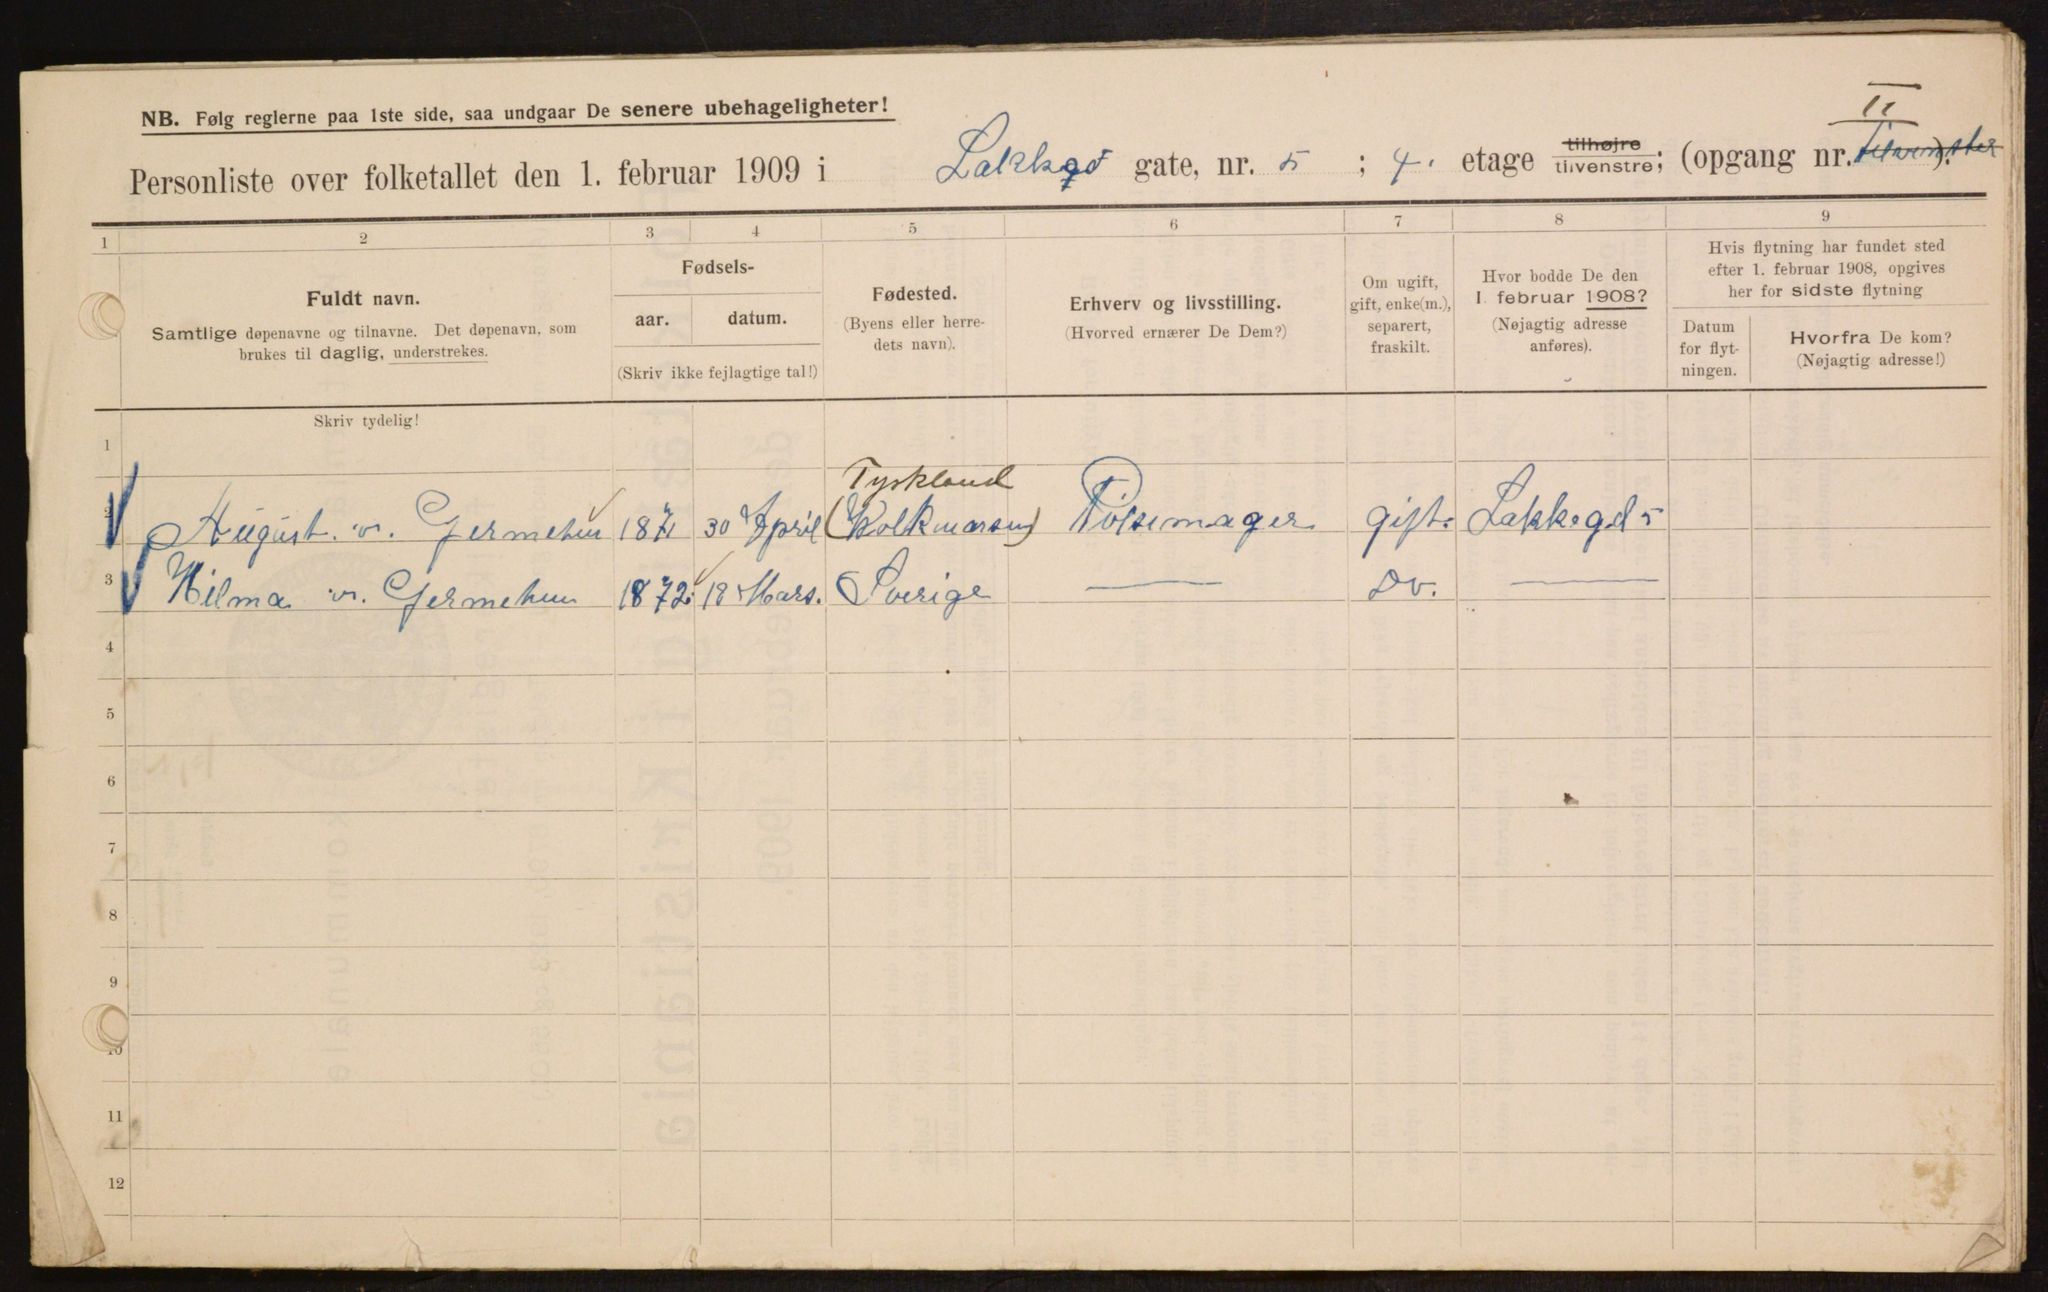 NB. Følg reglerne paa 1ste side, saa undgaar De senere ubehageligheter!
II
Personliste over folketallet den 1. februar 1909 i Lakkegd gate, nr. 5 ; 4. etage tilhøjre tilvenstre; (opgang nr. Tilvenster).
1 2 3 4 5 6 7 8 9
Fuldt navn.
Samtlige døpenavne og tilnavne. Det døpenavn, som
brukes til daglig, understrekes.
Fødsels-
aar. datum.
(Skriv ikke fejlagtige tal!)
Fødested.
(Byens eller herre-
dets navn).
Erhverv og livsstilling.
(Hvorved ernærer De Dem?)
Om ugift,
gift, enke(m.),
separert,
fraskilt.
Hvor bodde De den
1. februar 1908?
(Nøjagtig adresse
anføres).
Hvis flytning har fundet sted
efter 1. februar 1908, opgives
her for sidste flytning
Datum
for flyt-
ningen.
Hvorfra De kom?
(Nøjagtig adresse!)
Skriv tydelig!
1
Tyskland
2 August. v. Germeten 1871 30 April (Volkmarsen) Pölsemager gift. Lakkegd 5
3 Hilma v. Germeten 1872 18 Mars. Sverige — Do. —
4
5
6
7
8
9
10
11
12